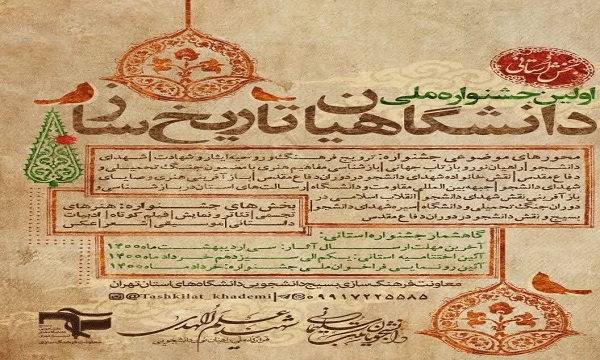 بخش استانی
اولین جشنواره ملی
دانشگاهیان تاریخ ساز
محورهای موضوعی جشنواره: ترویج فرهنگ و روحیه ایثار و شهادت | شهدای
دانشجو | راهیان نور و بازتاب جهانی | بازآفرینی مفاهیم هنری با مضمون جنگ تحمیلی و
دفاع مقدس | نقش خانواده شهدای دانشجو در دوران دفاع مقدس | بازآفرینی هنری وصایای
شهدای دانشجو | جبهه بین المللی مقاومت و دانشگاه | رسالت های استان در بازشناسی و
بازآفرینی نقش شهدای دانشجو | انقلاب اسلامی در
دوران جنگ تحمیلی و دانشگاه | سهم شهدای دانشجو |
بسیج و نقش دانشجو در دوران دفاع مقدس
بخش های جشنواره: هنرهای
تجسمی | تئاتر و نمایش | فیلم کوتاه | ادبیات
داستانی | موسیقی | شعر | عکس
گاهشمار جشنواره استانی:
آخرین مهلت ارسال آثار: سی اردیبهشت ماه ۱۴۰۰
آئین اختتامیه استانی: یکم الی سیزدهم خرداد ماه ۱۴۰۰
آئین رونمایی فراخوان ملی جشنواره: خرداد ماه ۱۴۰۰
معاونت فرهنگ سازی بسیج دانشجویی دانشگاه های استان تهران
@Tashkilat_khademi | ۰۹۹۱۷۲۲۵۵۸۵
شهید علم الهدی